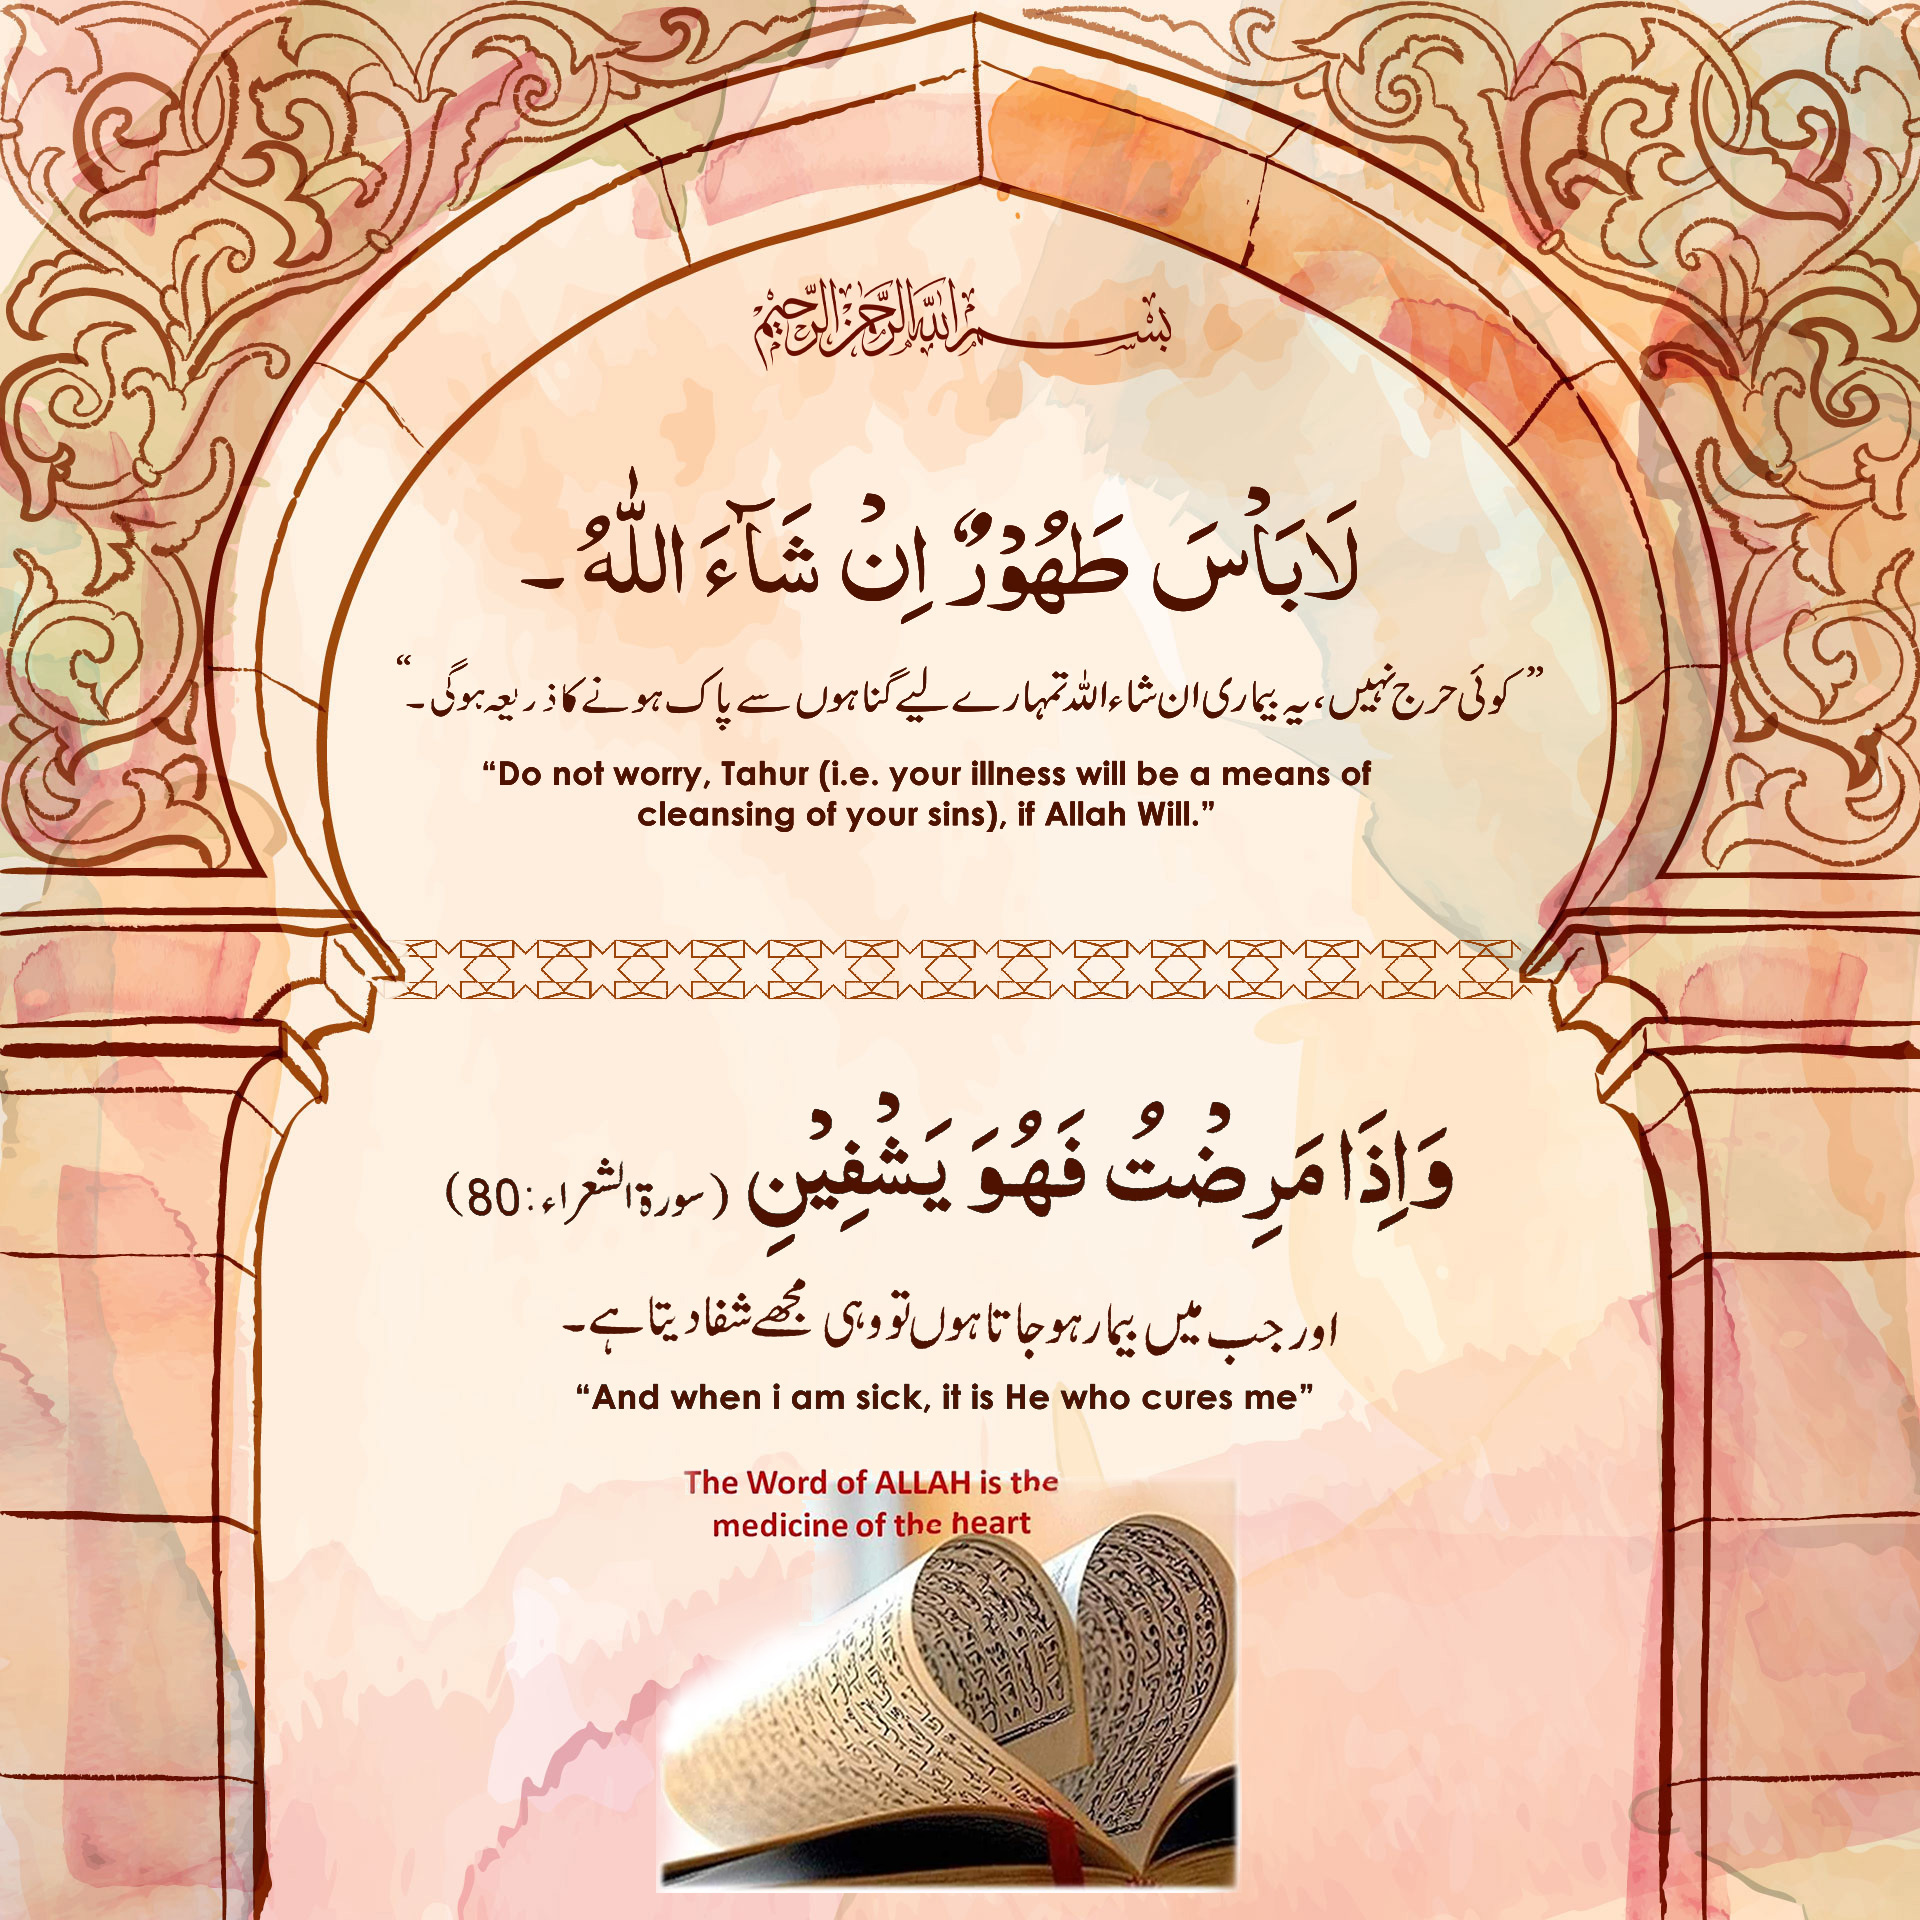 بسم الله الرحمن الرحيم
لَا بَاْسَ طَهُوْرٌ اِنْ شَآءَ اللّٰهُ ۔
”کوئی حرج نہیں، یہ بیماری ان شاء اللہ تمہارے لیے گناہوں سے پاک ہونے کا ذریعہ ہوگی۔“
“Do not worry, Tahur (i.e. your illness will be a means of
cleansing of your sins), if Allah Will.”
وَاِذَا مَرِضْتُ فَهُوَ يَشْفِيْنِ (سورة الشعراء:80)
اور جب میں بیمار ہو جاتا ہوں تو وہی مجھے شفا دیتا ہے۔
“And when i am sick, it is He who cures me”
The Word of ALLAH is the
medicine of the heart